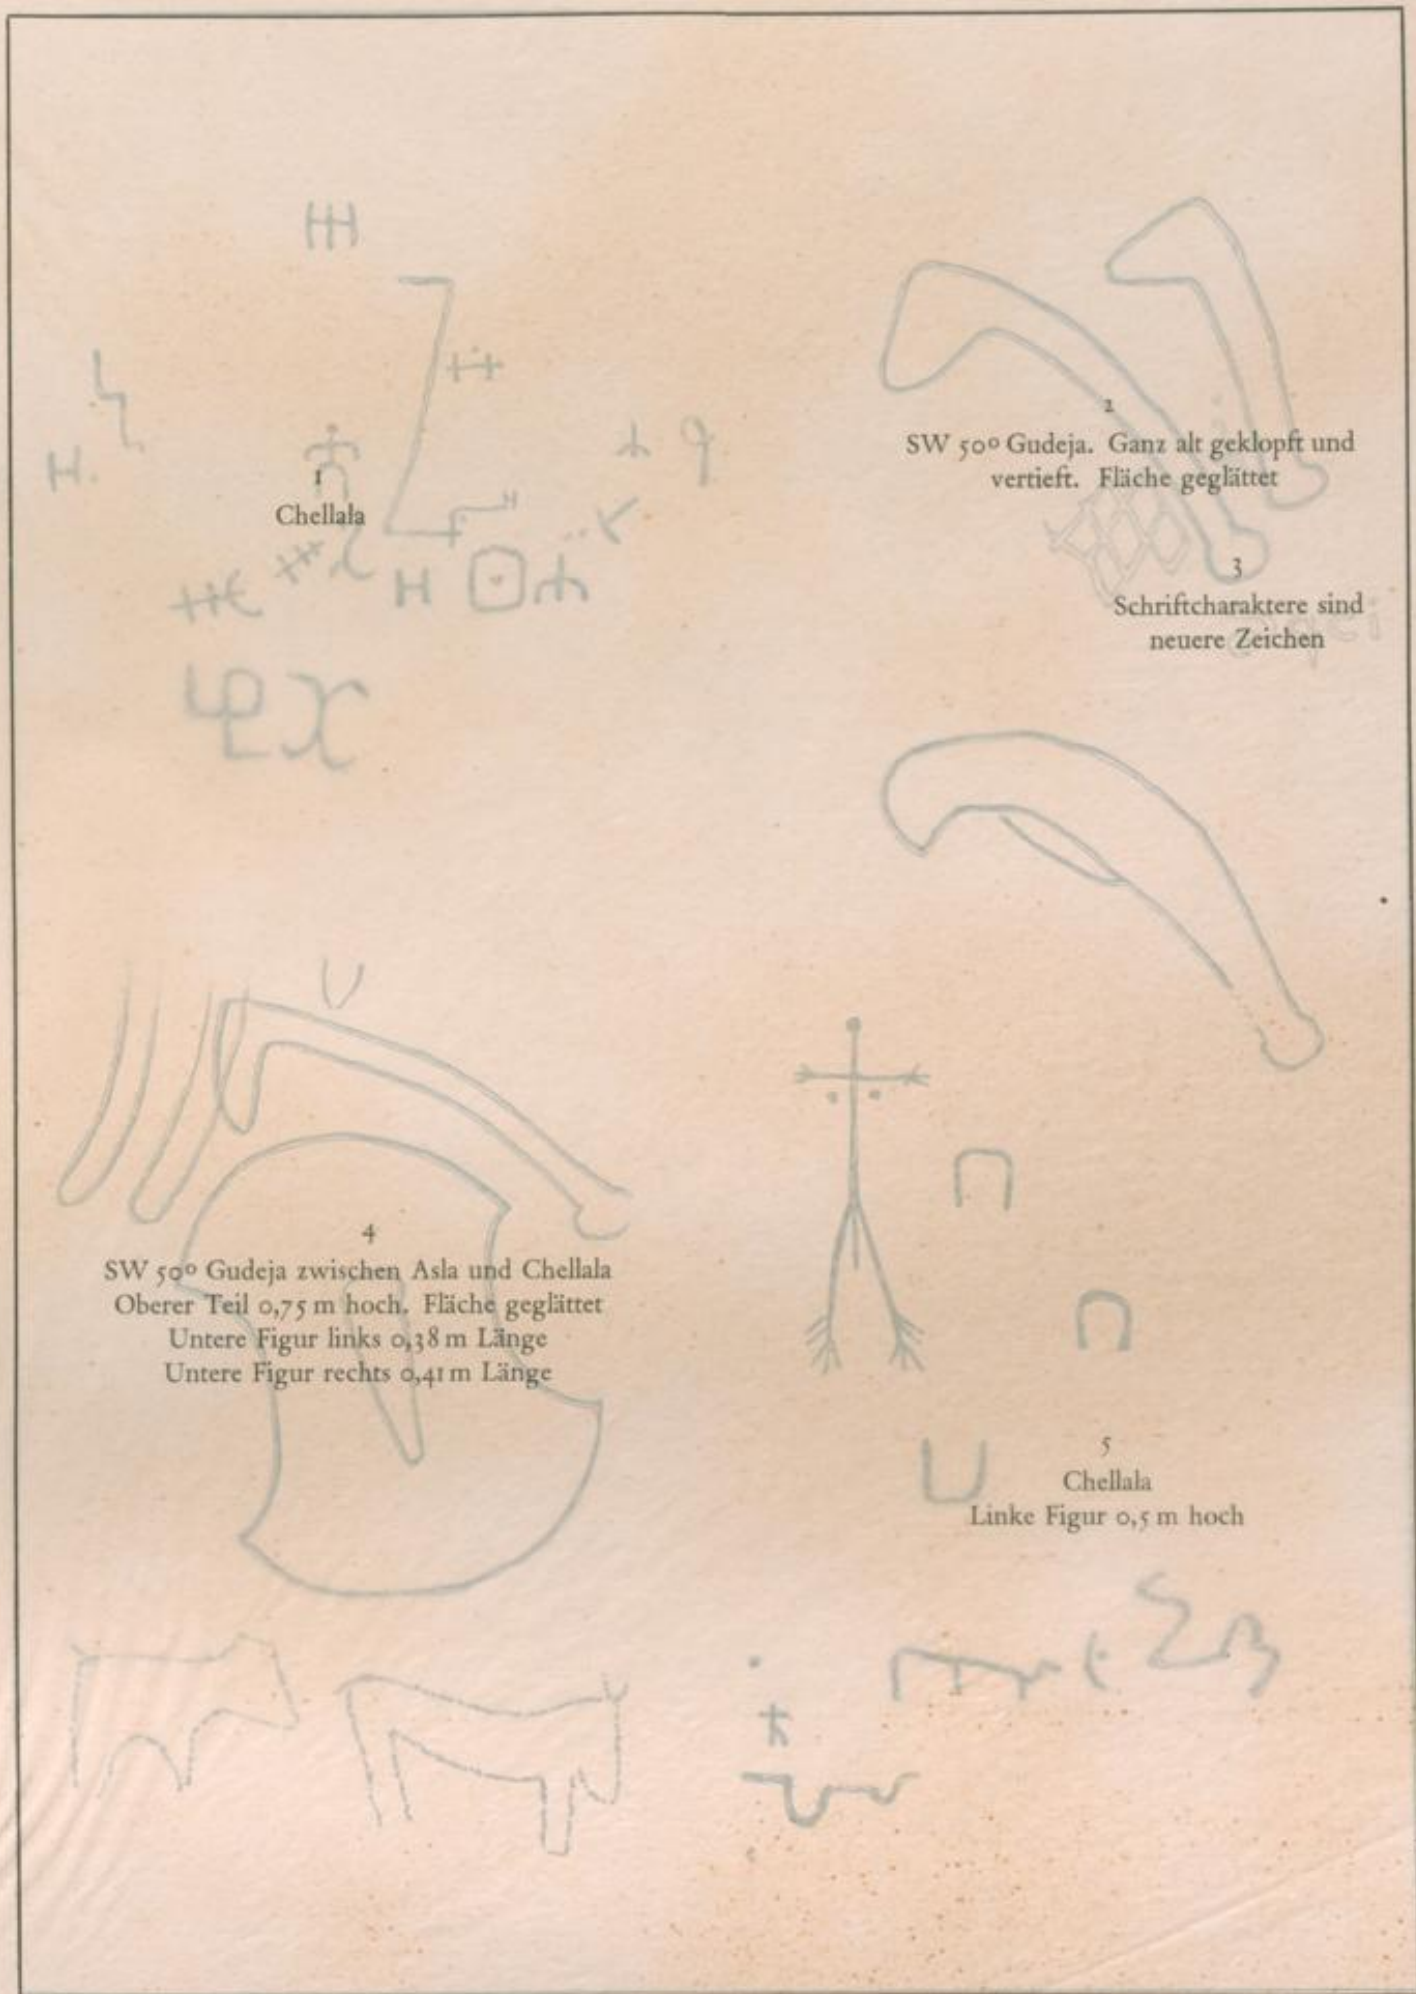 1
Chellala
2
SW 50° Gudeja. Ganz alt geklopft und
vertieft. Fläche geglättet
3
Schriftcharaktere sind
neuere Zeichen
4
SW 50° Gudeja zwischen Asla und Chellala
Oberer Teil 0,75 m hoch. Fläche geglättet
Untere Figur links 0,38 m Länge
Untere Figur rechts 0,41 m Länge
5
Chellala
Linke Figur 0,5 m hoch